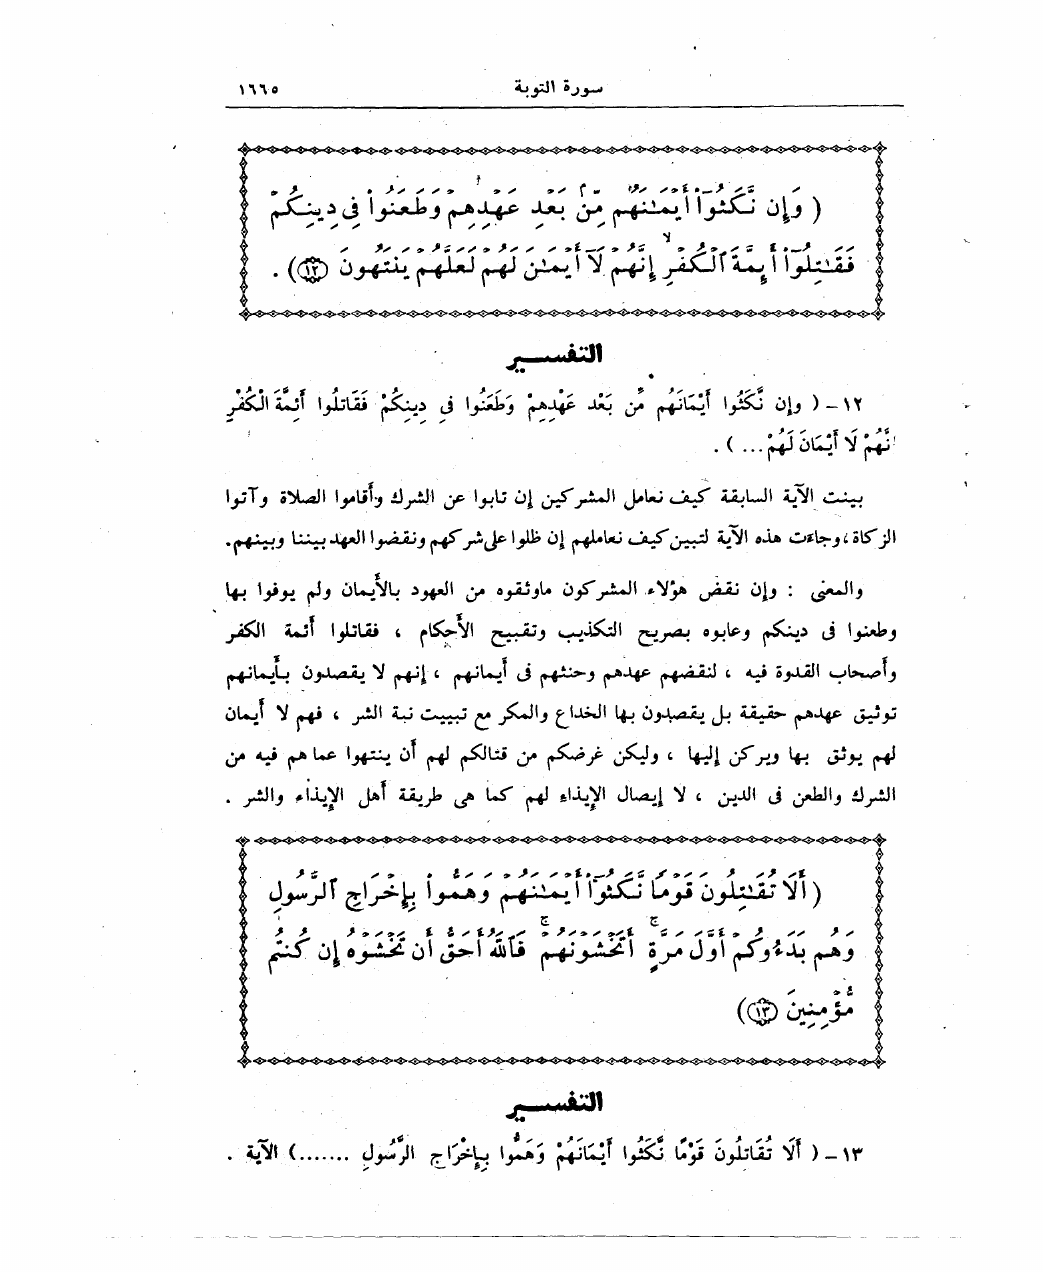 سورة التوبة
١٦٦٥
( وَإِن نَّكَثُوٓا۟ أَيْمَـٰنَهُم مِّنۢ بَعْدِ عَهْدِهِمْ وَطَعَنُوا۟ فِى دِينِكُمْ
فَقَـٰتِلُوٓا۟ أَئِمَّةَ ٱلْكُفْرِ ۙ إِنَّهُمْ لَآ أَيْمَـٰنَ لَهُمْ لَعَلَّهُمْ يَنتَهُونَ ١٢) .
التفســـير
١٢ – ( وإن نَّكَثُوا أَيْمَانَهُم مِّن بَعْد عَهْدِهِمْ وَطَعَنُوا فِى دِينِكُمْ فَقَاتلُوا أَئِمَّةَ الْكُفْرِ
إنَّهُمْ لَا أَيْمَانَ لَهُمْ ... ) .
بينت الآية السابقة كيف نعامل المشركين إن تابوا عن الشرك وأقاموا الصلاة وآتوا
الزكاة ، وجاءت هذه الآية لتبين كيف نعاملهم إن ظلوا على شركهم ونقضوا العهد بيننا وبينهم .
والمعنى : وإن نقض هؤلاء المشركون ماوثقوه من العهود بالأيمان ولم يوفوا بها
وطعنوا فى دينكم وعابوه بصريح التكذيب وتقبيح الأحكام ، فقاتلوا أئمة الكفر
وأصحاب القدوة فيه ، لنقضهم عهدهم وحنثهم فى أيمانهم ، إنهم لا يقصدون بأيمانهم
توثيق عهدهم حقيقة بل يقصدون بها الخداع والمكر مع تبييت نية الشر ، فهم لا أيمان
لهم يوثق بها ويركن إليها ، وليكن غرضكم من قتالكم لهم أن ينتهوا عما هم فيه من
الشرك والطعن فى الدين ، لا إيصال الإيذاء لهم كما هى طريقة أهل الإيذاء والشر .
( أَلَا تُقَـٰتِلُونَ قَوْمًا نَّكَثُوٓا۟ أَيْمَـٰنَهُمْ وَهَمُّوا۟ بِإِخْرَاجِ ٱلرَّسُولِ
وَهُم بَدَءُوكُمْ أَوَّلَ مَرَّةٍ ۚ أَتَخْشَوْنَهُمْ ۚ فَٱللَّهُ أَحَقُّ أَن تَخْشَوْهُ إِن كُنتُم
مُّؤْمِنِينَ ١٣)
التفســـير
١٣ – ( أَلَا تُقَاتِلُونَ قَوْمًا نَّكَثُوا أَيْمَانَهُمْ وَهَمُّوا بِإِخْرَاجِ الرَّسُولِ .......) الآية .